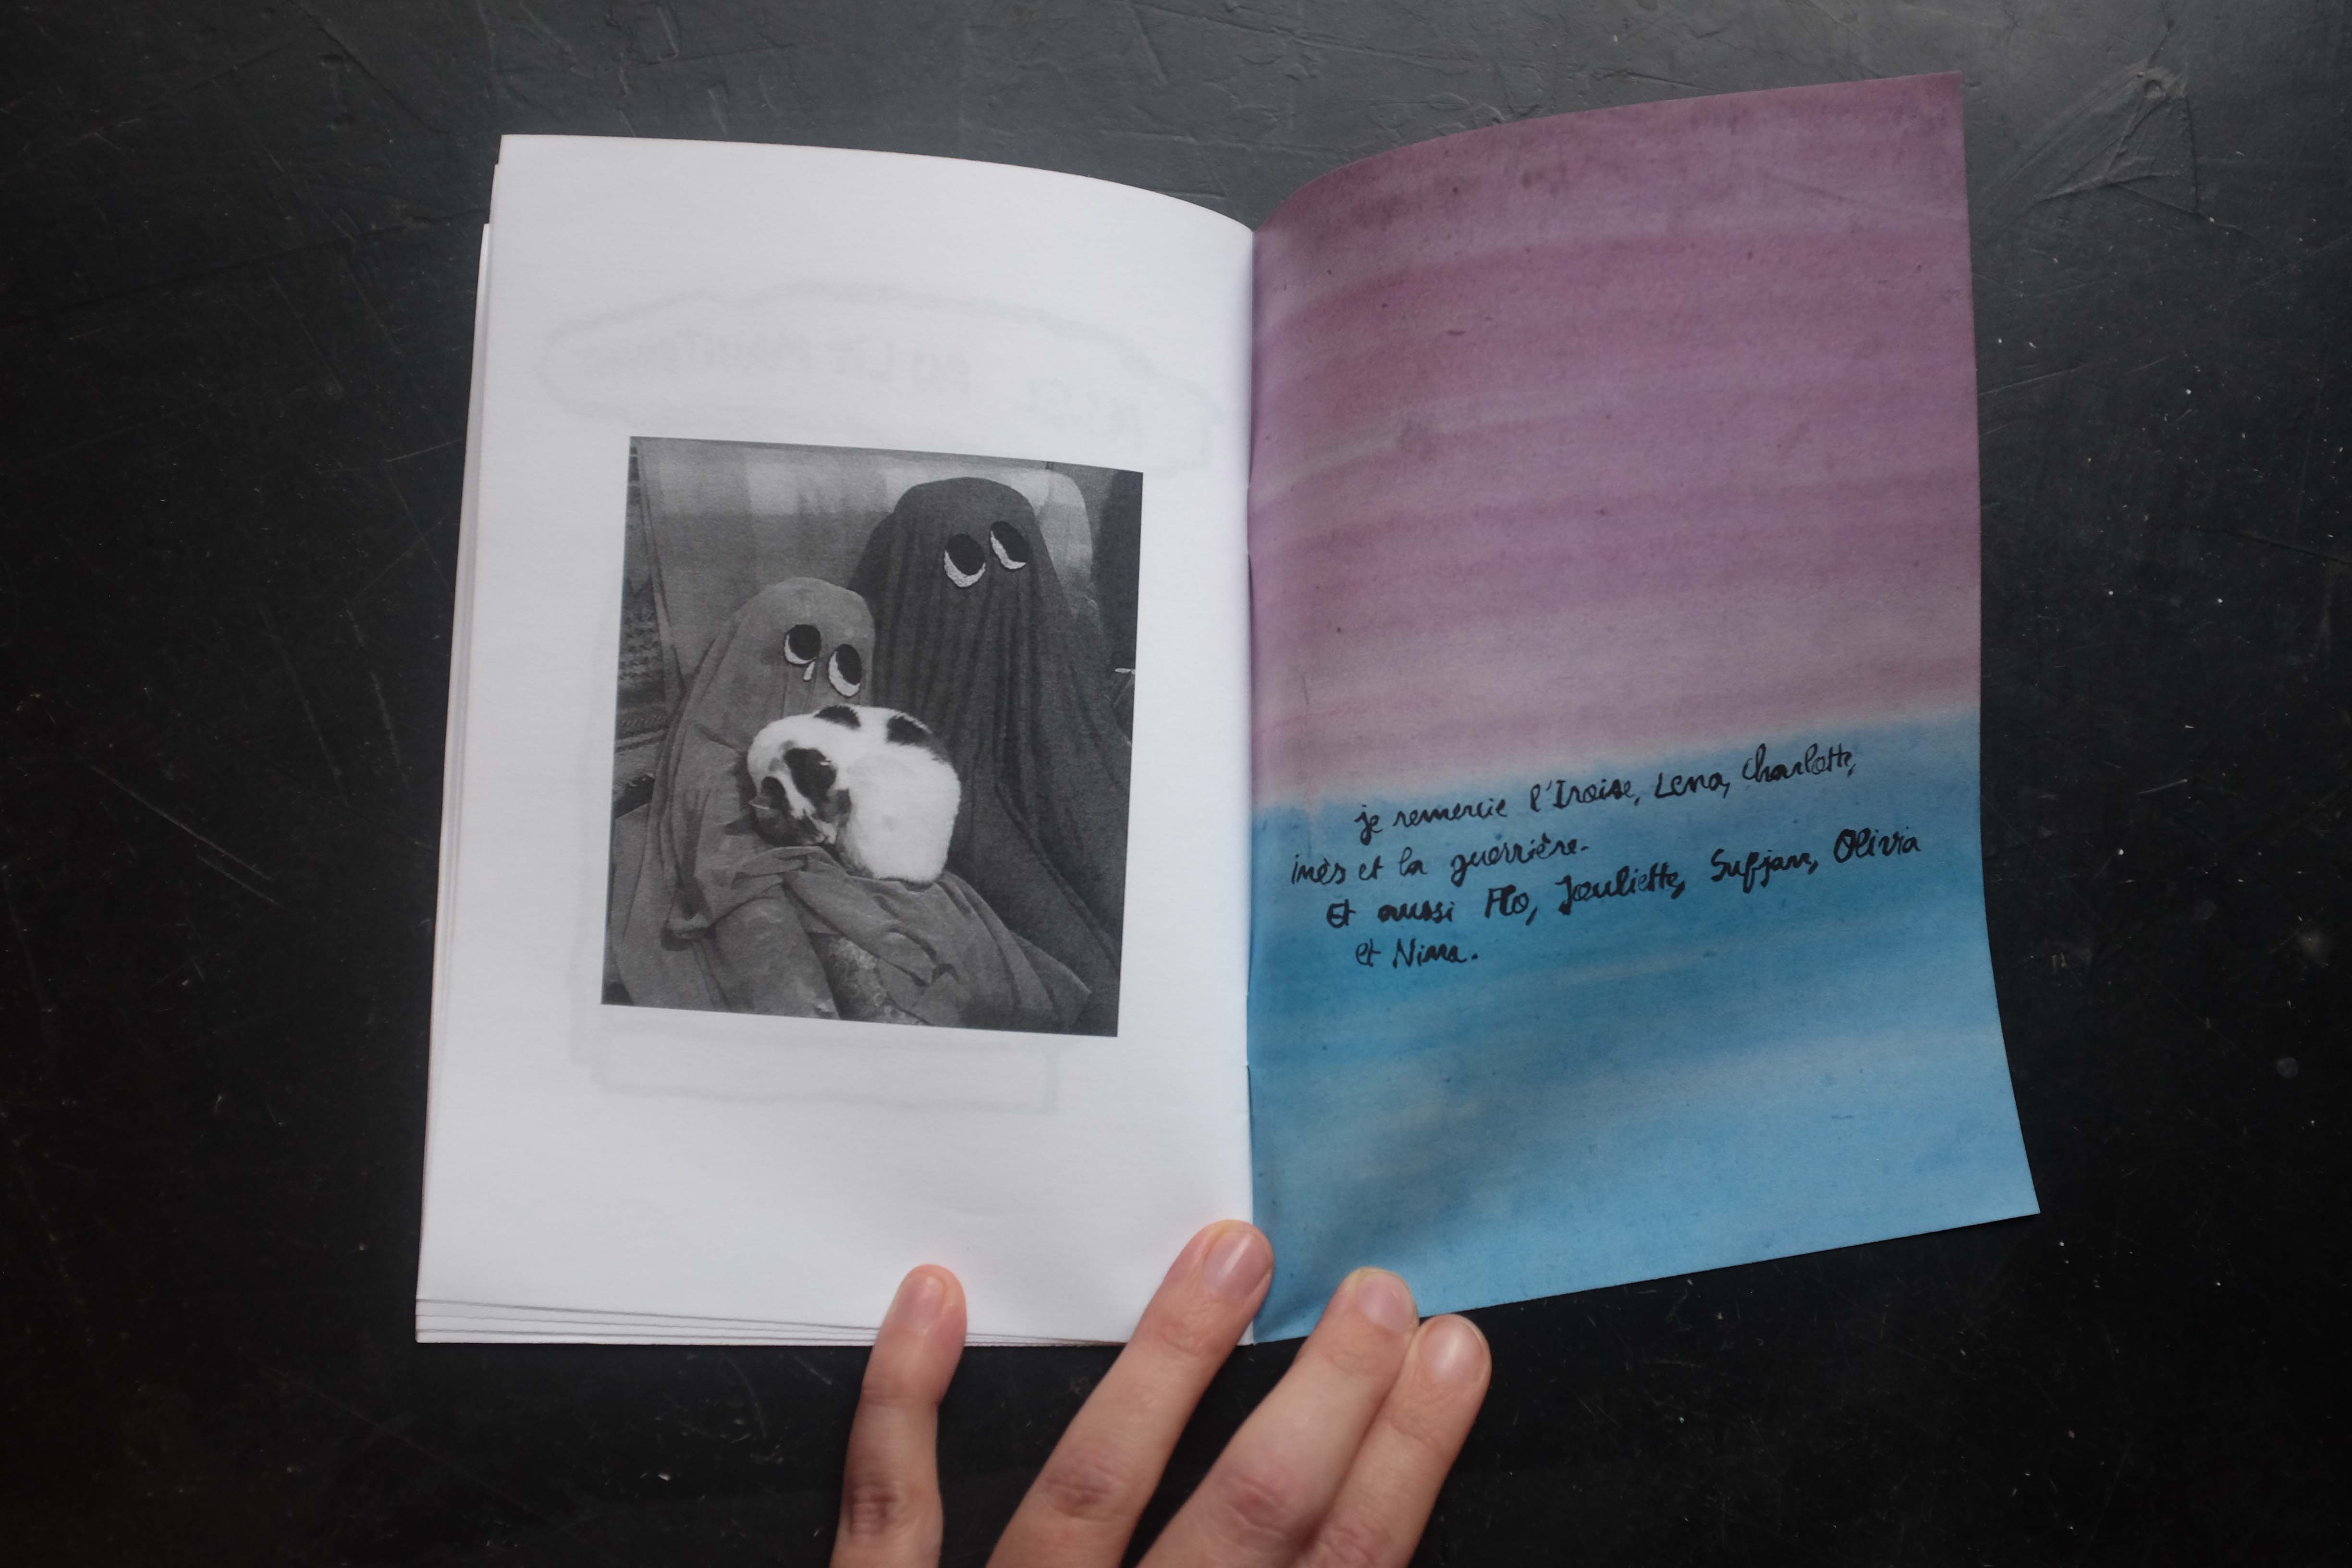 je remercie l'Iroise, Lena, Charlotte,
inès et la guerrière.
Et aussi Flo, Jouliette, Sufjan, Olivia
et Nina.